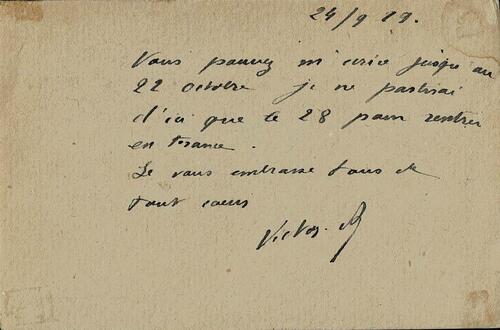 24/9/19.
Vous pouvez m'ecrire jusqu'au
22 octobre je ne partirai
d'ici que le 28 pour rentrer
en France.
Je vous embrasse tous de
tout coeur
Victor